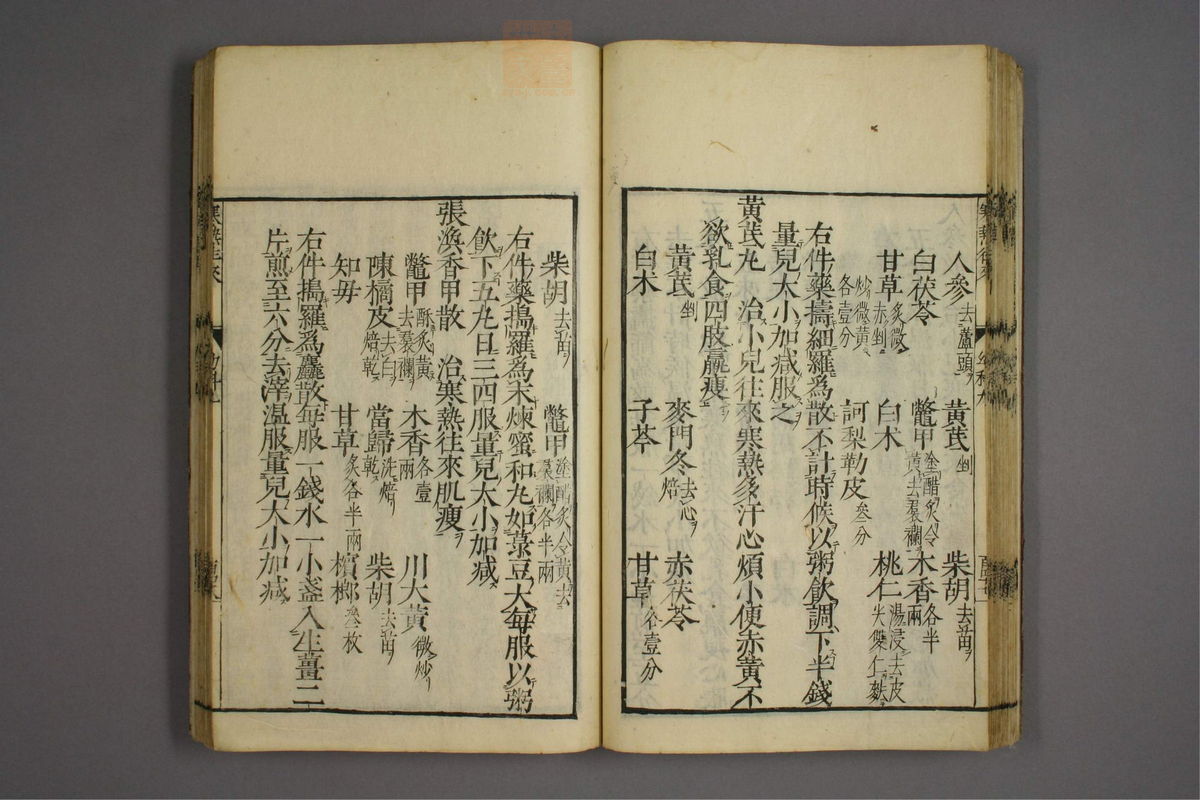 人參去蘆頭　黃芪剉　柴胡去苗
白茯苓　鼈甲塗醋炙令黃去裙襴　木香各半兩
甘草炙微赤剉　白朮　桃仁湯浸去皮尖雙仁麩炒微黃各壹分
訶梨勒皮叁分
右件藥擣細羅爲散不計時候以粥飲調下半錢
量兒大小加減服之
黃芪丸　治小兒往來寒熱多汗心煩小便赤黃不
欲乳食四肢羸瘦
黃芪剉　麥門冬去心焙　赤茯苓
白朮　子芩　甘草各壹分
柴胡去苗　鼈甲塗醋炙令黃去裙襴各半兩
右件藥搗羅爲末煉蜜和丸如菉豆大每服以粥
飲下五丸日三四服量兒大小加減
張渙香甲散　治寒熱往來肌瘦
鼈甲酥炙黃去裙襴　木香各壹兩　川大黃微炒
陳橘皮去白焙乾　當歸洗焙乾　柴胡去苗
知母　甘草炙各半兩　檳榔叁枚
右件搗羅爲麤散每服一錢水一小盞入生薑二
片煎至六分去滓溫服量兒大小加減